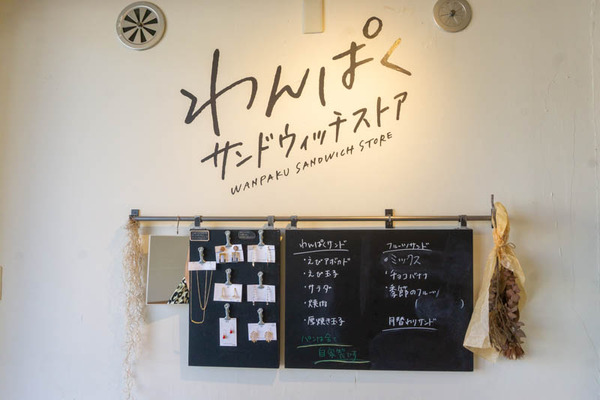 わんぱく
サンドウィッチストア
WANPAKU SANDWICH STORE
わんぱくサンド
・えびアボカド
・えび玉子
・サラダ
・焼肉
・厚焼き玉子
パンは全て
自家製です
フルーツサンド
・ミックス
・チョコバナナ
・季節のフルーツ
( )
月替わりサンド